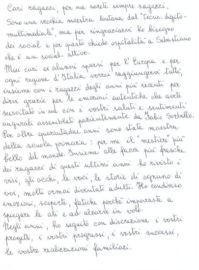 Cari ragazzi, per me sarete sempre ragazzi.
Sono una vecchia maestra lontana dal "tecno. digito-
multimediale", ma per ringraziarvi ho bisogno
dei social e per questo chiedo ospitalità a Sebastiano
che è un social-attivo.
Miei cari ex alunni sparsi per l'Europa e per
ogni regione d'Italia, vorrei raggiungervi tutti,
insieme con i ragazzi degli anni più recenti per
dirvi grazie per le emozioni autentiche che avete
suscitato in me con i vostri saluti e sentimenti
augurali assemblati pazientemente da Fabio Sorbello.
Per oltre quarantadue anni sono stata maestra
della scuola primaria: per me il "mestiere più"
bello del mondo. Insieme alle facce più fresche
dei ragazzi di questi ultimi anni ho rivisto i
visi, gli occhi, le voci, le storie di ognuno di
voi, molti ormai diventati adulti. Ho condiviso
emozioni, scoperte, fatiche perché imparaste a
spiegare le ali e ad alzarvi in volo.
Negli anni, ho seguito con discrezione i vostri
progetti, i vostri progressi, i vostri successi,
le vostre realizzazioni familiari.